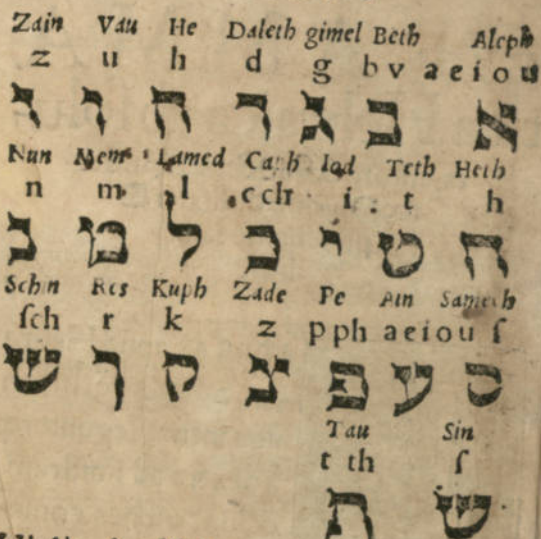 Zain Vau He Daleth gimel Beth Aleph
z u h d g b v a e i o u
א ב ג ד ה ו ז
Nun Mem Lamed Caph Iod Teth Heth
n m l c ch i t h
ח ט י כ ל מ נ
Schin Res Kuph Zade Pe Ain Samech
ſch r k z p ph a e i o u ſ
ס ע פ צ ק ר ש
Tau Sin
t th ſ
שׂ ת